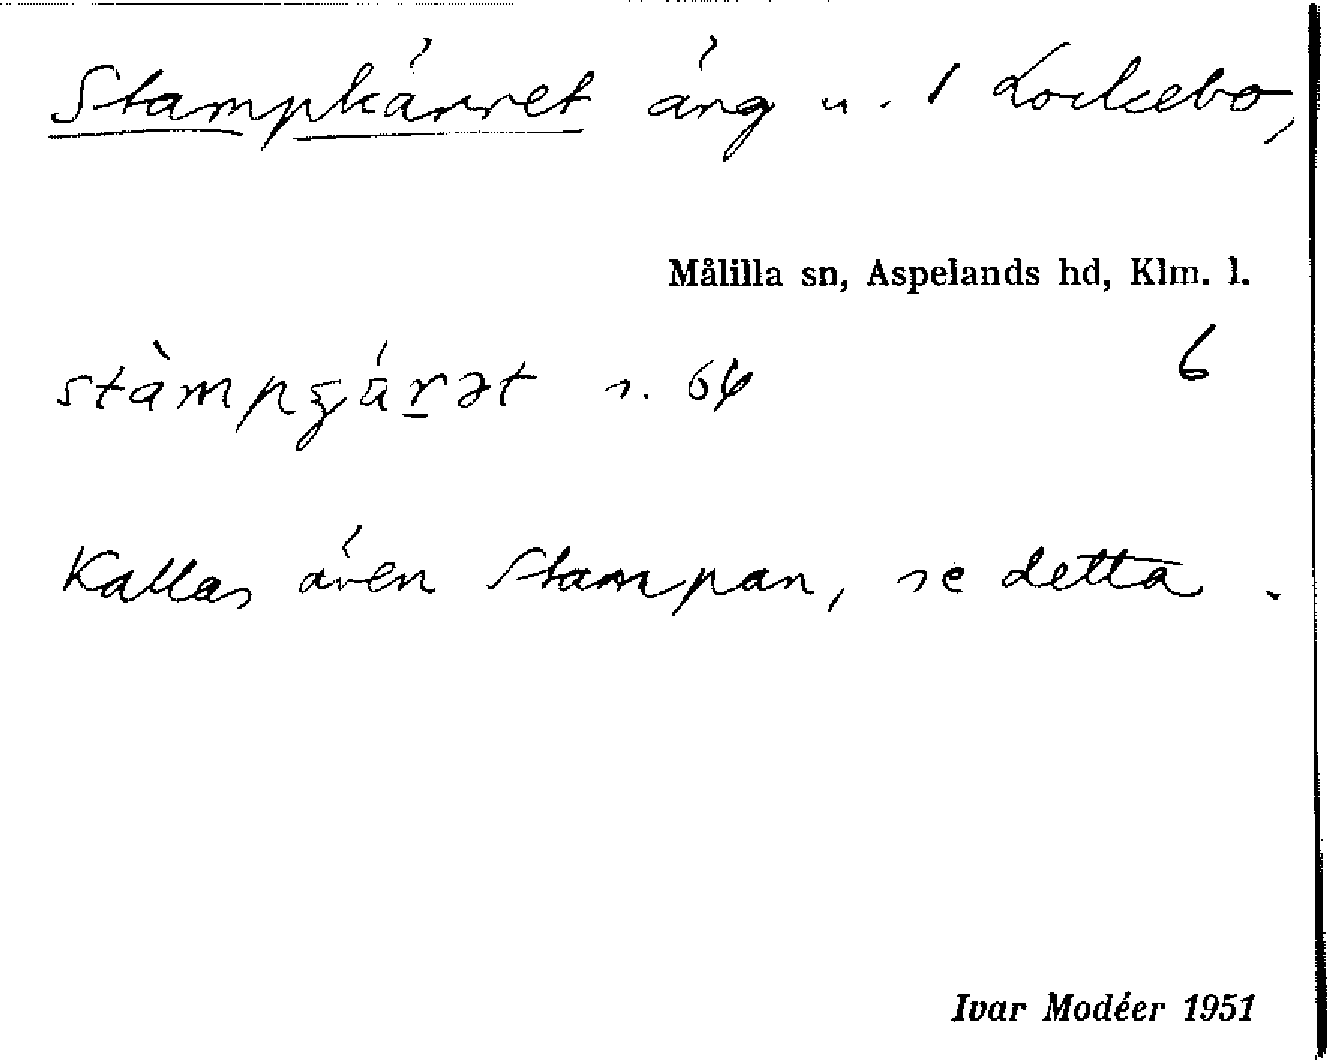 Stampkärret äng u. 1 Lockebo,
Målilla sn, Aspelands hd, Klm. l.
6
s. 64
Kallas även Stampan, se detta.
Ivar Modéer 1951